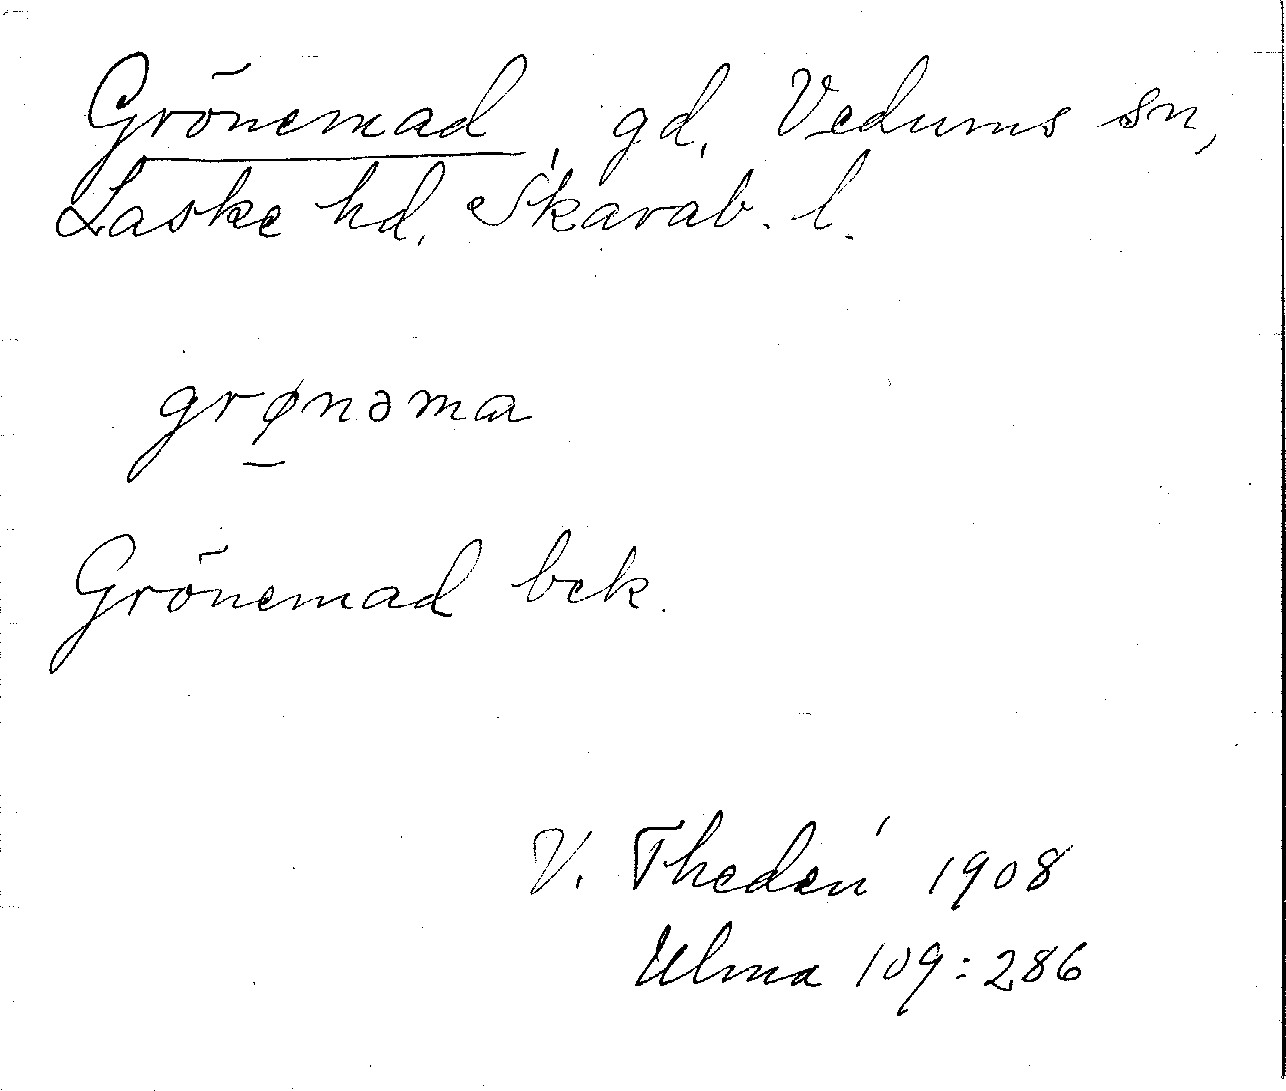 Grönemad, gd, Vedums sn,
Laske hd, Skarab. l.
grønəma
Grönemad bek.
V. Thedén 1908
Ulma 109:286